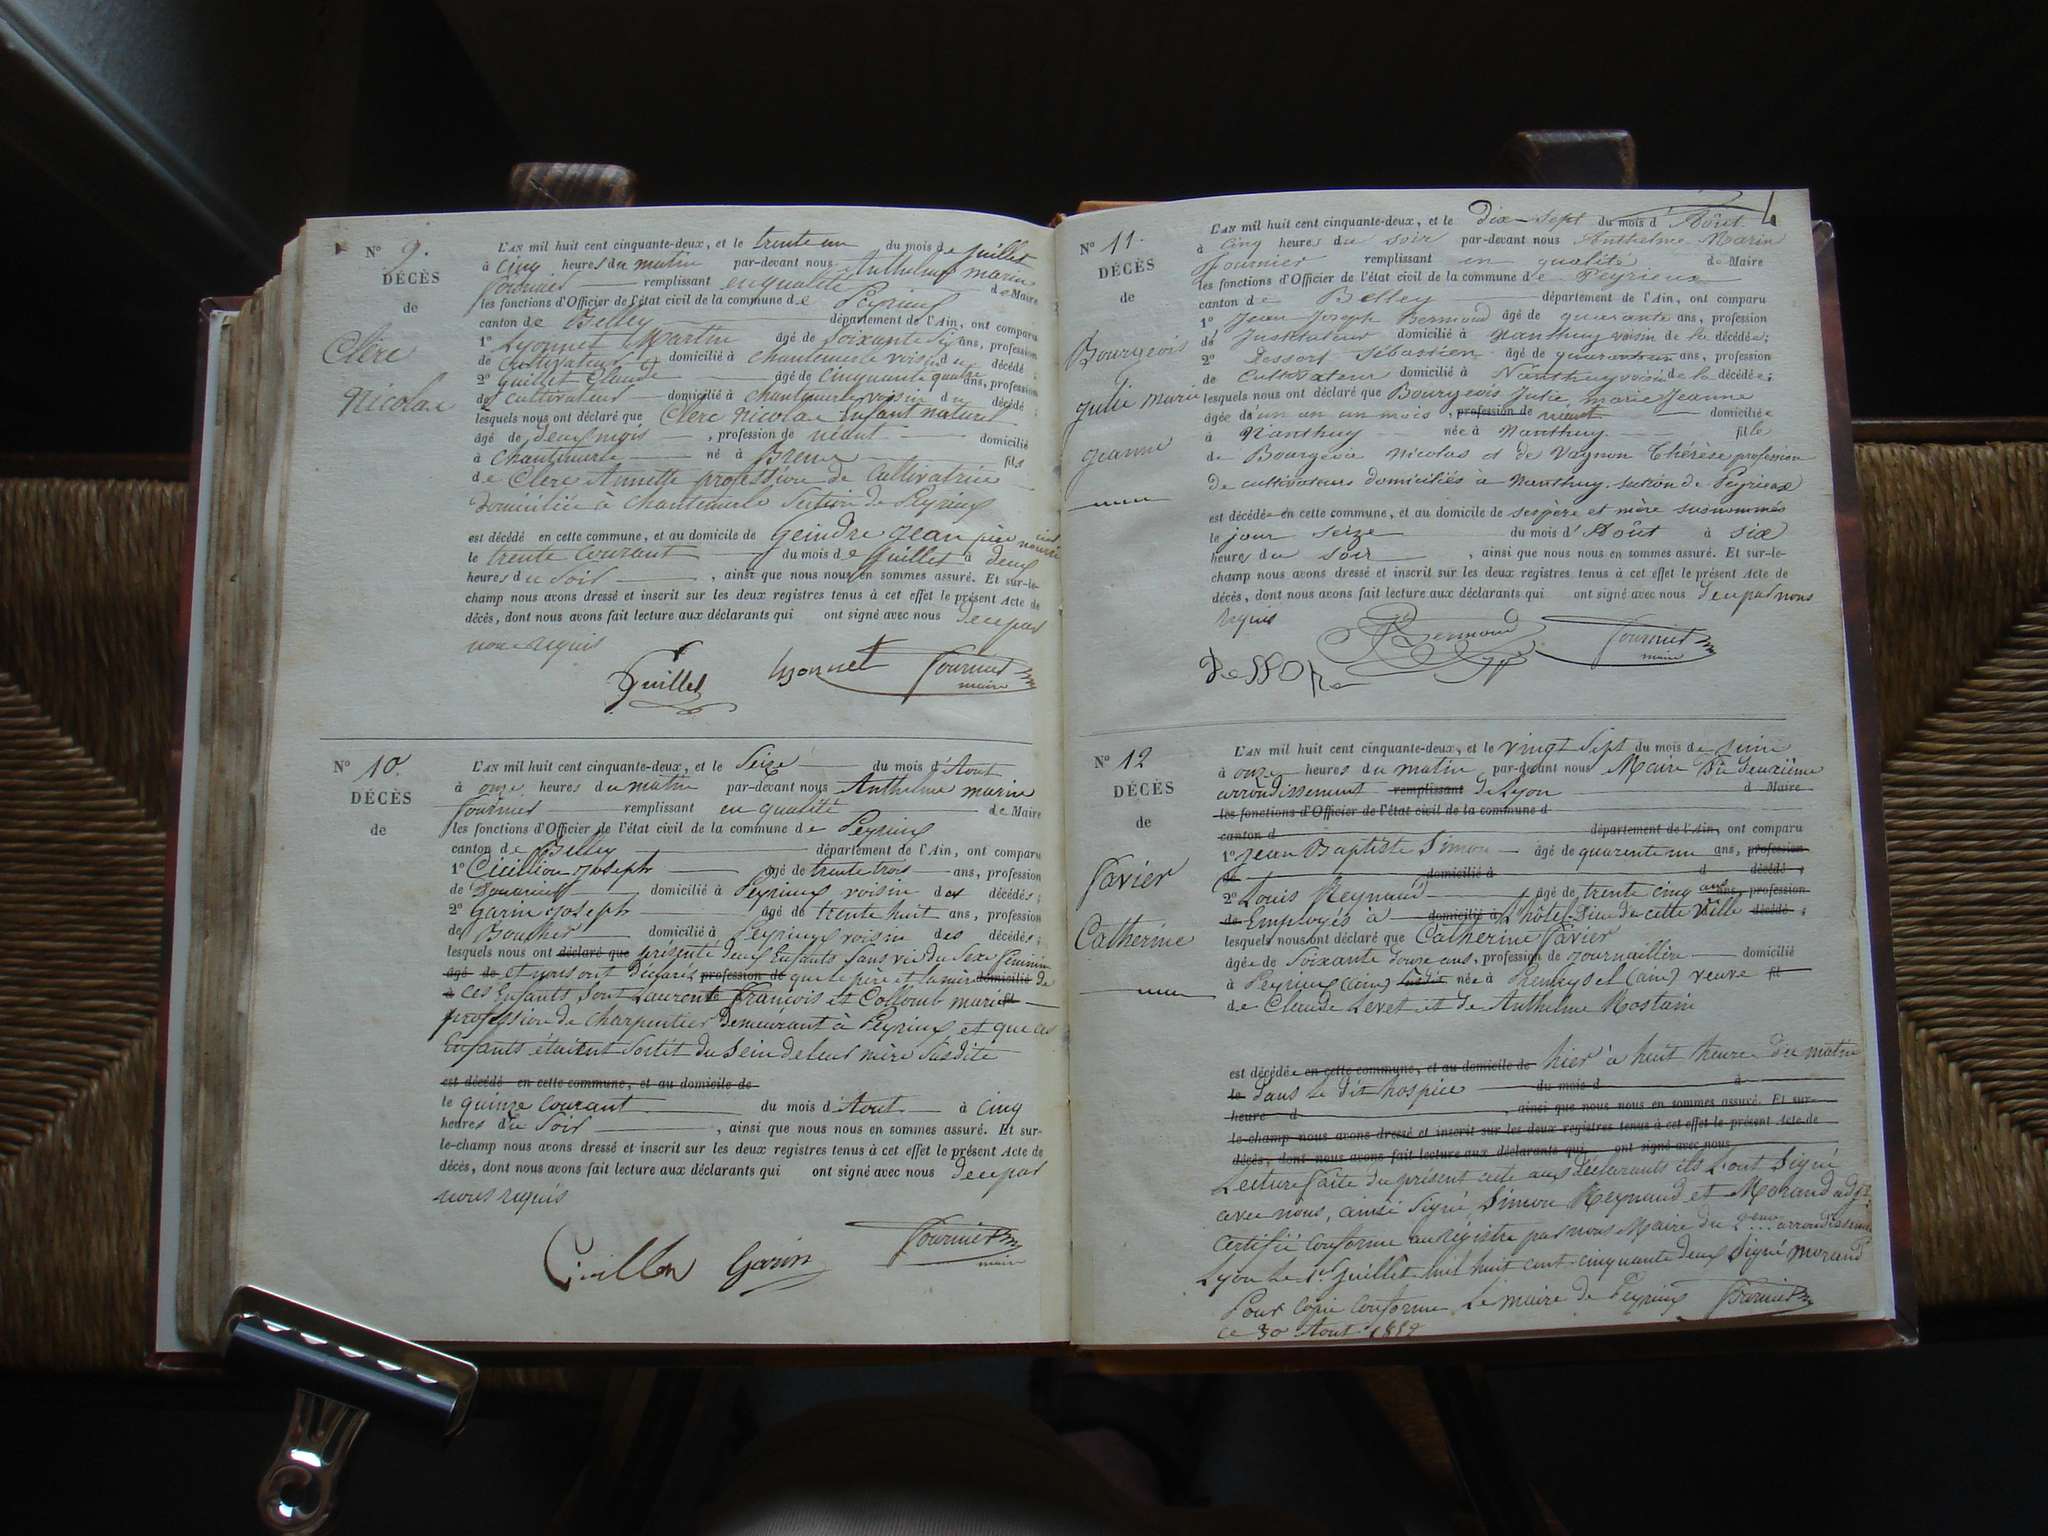 N° 9.
DÉCÈS
de
Clerc
Nicolas
L'AN mil huit cent cinquante-deux, et le trente un du mois de Juillet
à cinq heures du matin par-devant nous Anthelme marin
fournier remplissant en qualité de Maire
les fonctions d'Officier de l'état civil de la commune de Peyrieux
canton de Belley département de l'Ain, ont comparu
1° Lyonnet Martin âgé de soixante six ans, profession
de cultivateur domicilié à chantemerle voisin du décédé ;
2° guillet Claude âgé de cinquante quatre ans, profession
de cultivateur domicilié à chantemerle voisin du décédé ;
lesquels nous ont déclaré que Clerc Nicolas Enfant naturel
âgé de deux mois , profession de néant domicilié
à chantemerle né à fils
de Clerc Annette profession de Cultivatrice
Domiciliée à Chantemerle Section de Peyrieux
est décédé en cette commune, et au domicile de Geindre Jean père
le trente courant du mois de Juillet à deux
heures du Soir , ainsi que nous nous en sommes assuré. Et sur-le-
champ nous avons dressé et inscrit sur les deux registres tenus à cet effet le présent Acte de
décès, dont nous avons fait lecture aux déclarants qui ont signé avec nous de ce par
nous requis
Guillet Lyonnet Fournier
maire
N° 10.
DÉCÈS
de
L'AN mil huit cent cinquante-deux, et le Seize du mois d'Aout
à onze heures du matin par-devant nous Anthelme marin
fournier remplissant en qualité de Maire
les fonctions d'Officier de l'état civil de la commune de Peyrieux
canton de Belley département de l'Ain, ont comparu
1° Joseph âgé de trente trois ans, profession
de domicilié à Peyrieux voisin des décédés ;
2° Garin Joseph âgé de trente huit ans, profession
de Boucher domicilié à Peyrieux voisin des décédés ;
lesquels nous ont déclaré que présenté deux Enfants Sans vie du Sexe féminin
âgé de et nous ont déclarés profession de que le père et la mère domicilié de
à ces Enfants Sont Laurent François et Collomb marie fil
profession de charpentier Demeurant à Peyrieux et que ces
Enfants étaient Sortit du Sein de leur mère Susdite
est décédé en cette commune, et au domicile de
le quinze courant du mois d'Aout à cinq
heures du Soir , ainsi que nous nous en sommes assuré. Et sur-
le-champ nous avons dressé et inscrit sur les deux registres tenus à cet effet le présent Acte de
décès, dont nous avons fait lecture aux déclarants qui ont signé avec nous de ce par
nous requis
Garin Fournier
maire
N° 11.
DÉCÈS
de
Bourgeois
Julie Marie
Jeanne
L'AN mil huit cent cinquante-deux, et le Dix-sept du mois d'Août
à Cinq heures du soir par-devant nous Anthelme Marin
Fournier remplissant en qualité de Maire
les fonctions d'Officier de l'état civil de la commune de Peyrieux
canton de Belley département de l'Ain, ont comparu
1° Jean Joseph Bermond âgé de quarante ans, profession
de Instituteur domicilié à Nanthuy voisin de la décédée;
2° Dessort Sébastien âgé de quarante un ans, profession
de Cultivateur domicilié à Nanthuy voisin de la décédée;
lesquels nous ont déclaré que Bourgeois Julie marie Jeanne
âgée d'un an un mois , profession de néant domiciliée
à Nanthuy née à Nanthuy fille
de Bourgeois Nicolas et de Vagnon Thérèse profession
De cultivateurs domiciliés à Nanthuy, section de Peyrieux
est décédée en cette commune, et au domicile de ses père et mère susnommés
le jour seize du mois d'Août à six
heures du soir , ainsi que nous nous en sommes assuré. Et sur-le-
champ nous avons dressé et inscrit sur les deux registres tenus à cet effet le présent Acte de
décès, dont nous avons fait lecture aux déclarants qui ont signé avec nous de ce par nous
Requis
Bermond Fournier
maire
Dessort
N° 12
DÉCÈS
de
Favier
Catherine
L'AN mil huit cent cinquante-deux, et le vingt Sept du mois de Juin
à onze heures du matin par-devant nous Maire Du deuxième
arrondissement remplissant de Lyon d Maire
les fonctions d'Officier de l'état civil de la commune d
canton d département de l'Ain, ont comparu
1° Jean Baptiste Simon âgé de quarente un ans, profession
de domicilié à d décédé ;
2° Louis Reynaud âgé de trente cinq ans ans, profession
de Employés à domicilié à l'hôtel-Dieu de cette Ville décédé ;
lesquels nous ont déclaré que Catherine Favier
âgée de Soixante douze ans, profession de journaillière domicilié
à Peyrieux (ain) née à (ain) veuve fil
de Claude Levet et de Anthelme Rostain
est décédée en cette commune, et au domicile de hier à huit heures Du matin
le Dans le dit hospice du mois d à
heure d , ainsi que nous nous en sommes assuré. Et sur-
le-champ nous avons dressé et inscrit sur les deux registres tenus à cet effet le présent Acte de
décès, dont nous avons fait lecture aux déclarants qui ont signé avec nous
Lecture faite du présent acte aux déclarants ils L'ont Signé
avec nous, ainsi Signé, Simon Reynaud et Morand adjt
Certifié Conforme au régistre par nous Maire du 2eme arrondissement
Lyon Le 1er Juillet mil huit cent cinquante deux Signé Morand
Pour Copie Conforme, Le maire de Peyrieux Fournier
Ce 30 Aout 1852